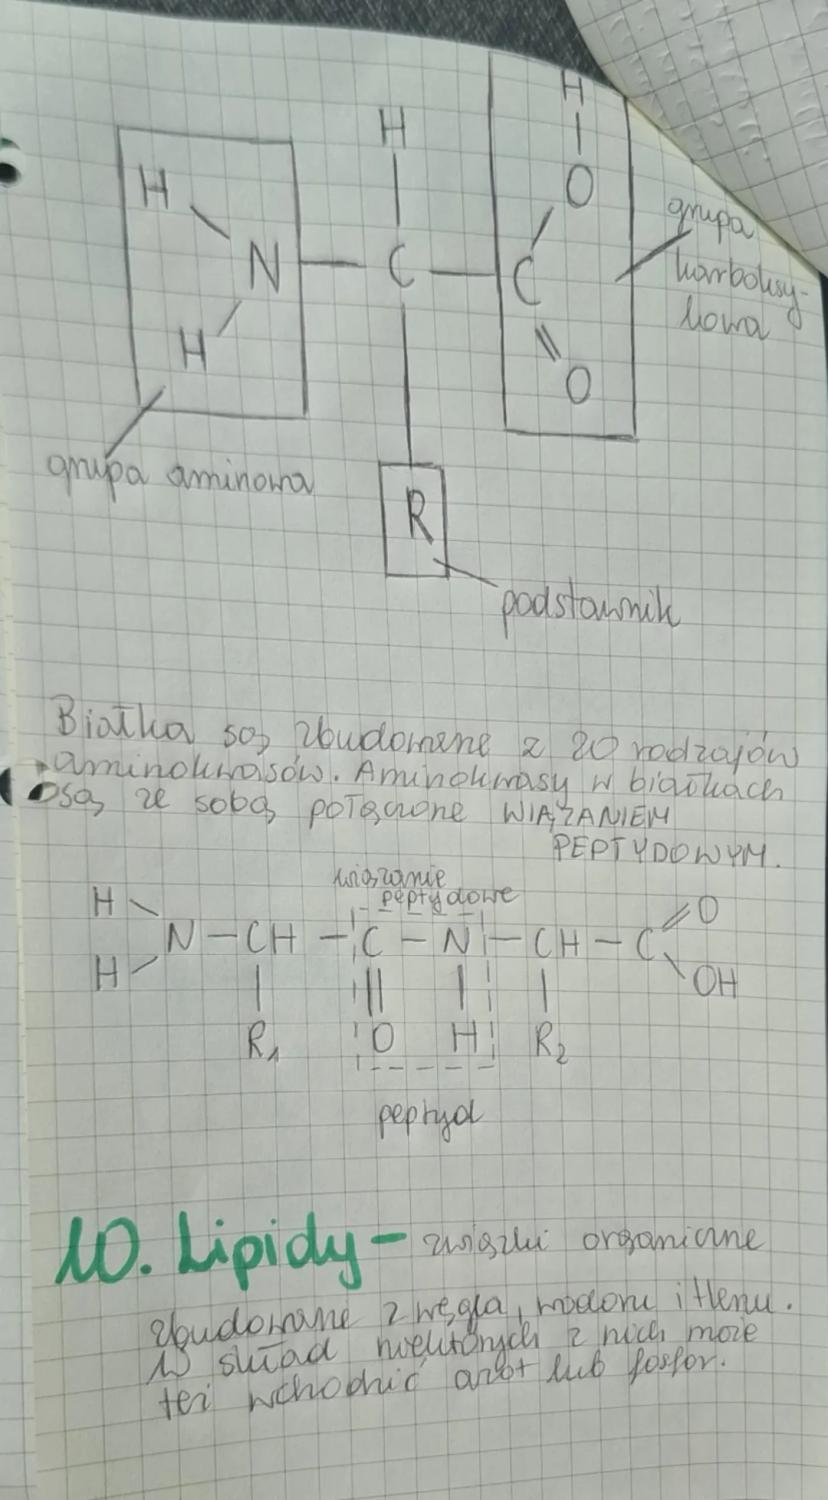 H
H
H
O
H
N
C
C
O
H
R
grupa
karboksy-
lowa
grupa aminowa
podstawnik
Białka są zbudowane z 20 rodzajów
aminokwasów. Aminokwasy w białkach
są ze sobą połączone WIĄZANIEM
PEPTYDOWYM.
wiązanie
peptydowe
H
H
N - CH - C - N - CH - C
O
OH
R1
O
H
R2
peptyd
10. Lipidy - związki organiczne
zbudowane z węgla, wodoru i tlenu.
W skład niektórych z nich może
też wchodzić azot lub fosfor.